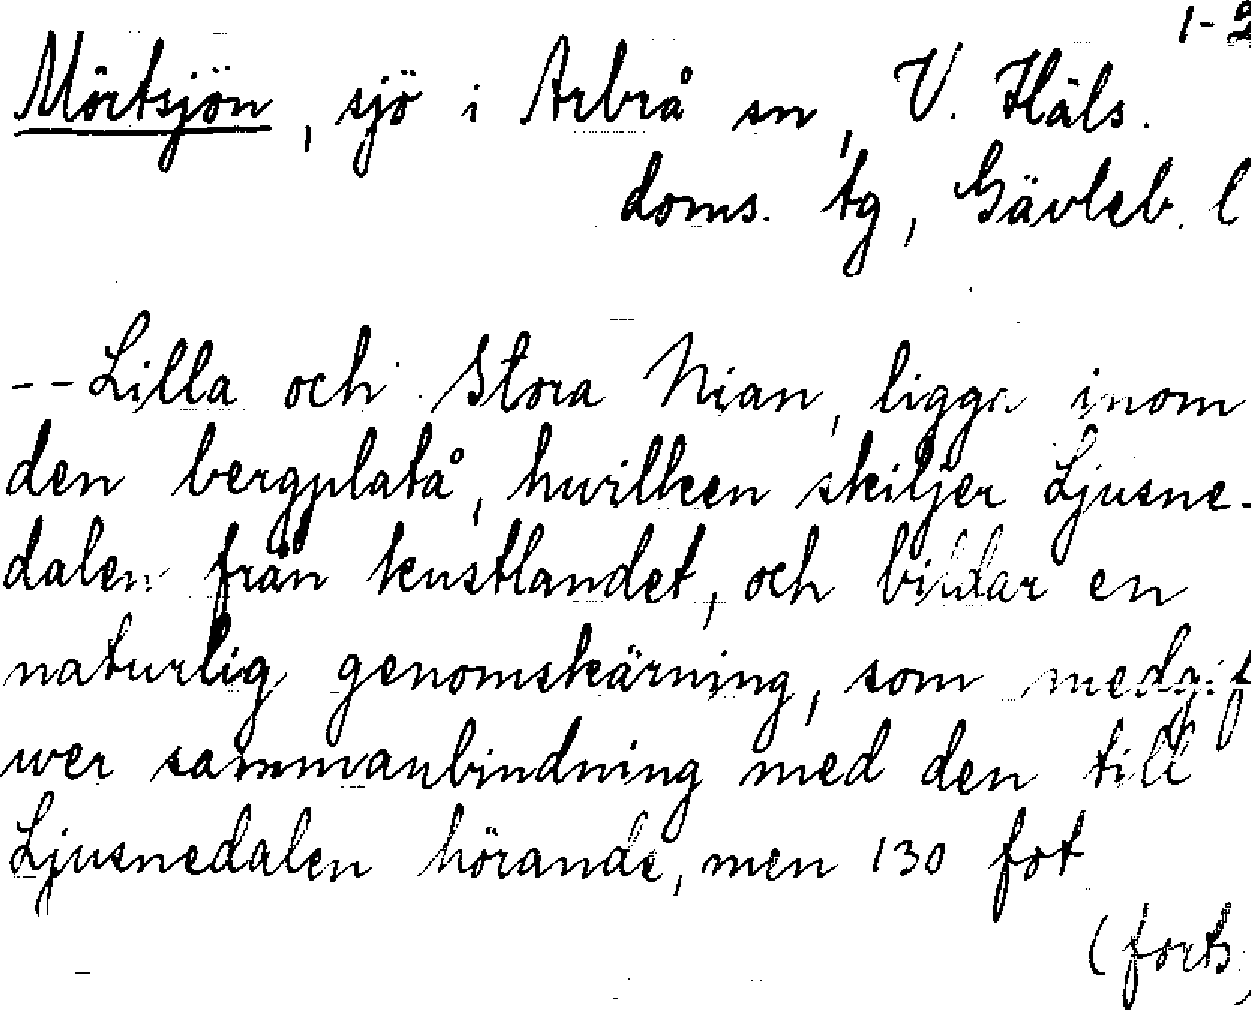 1-2
Mörtsjön, sjö i Arbrå sn, V. Häls.
doms. tg, Gävleb. l
-- Lilla och Stora Nian, ligga inom
den bergplatå, hvilken skiljer Ljusne-
dalen från kustlandet, och bildar en
naturlig genomskärning, som medgif
wer sammanbindning med den till
Ljusnedalen hörande, men 130 fot
(forts)